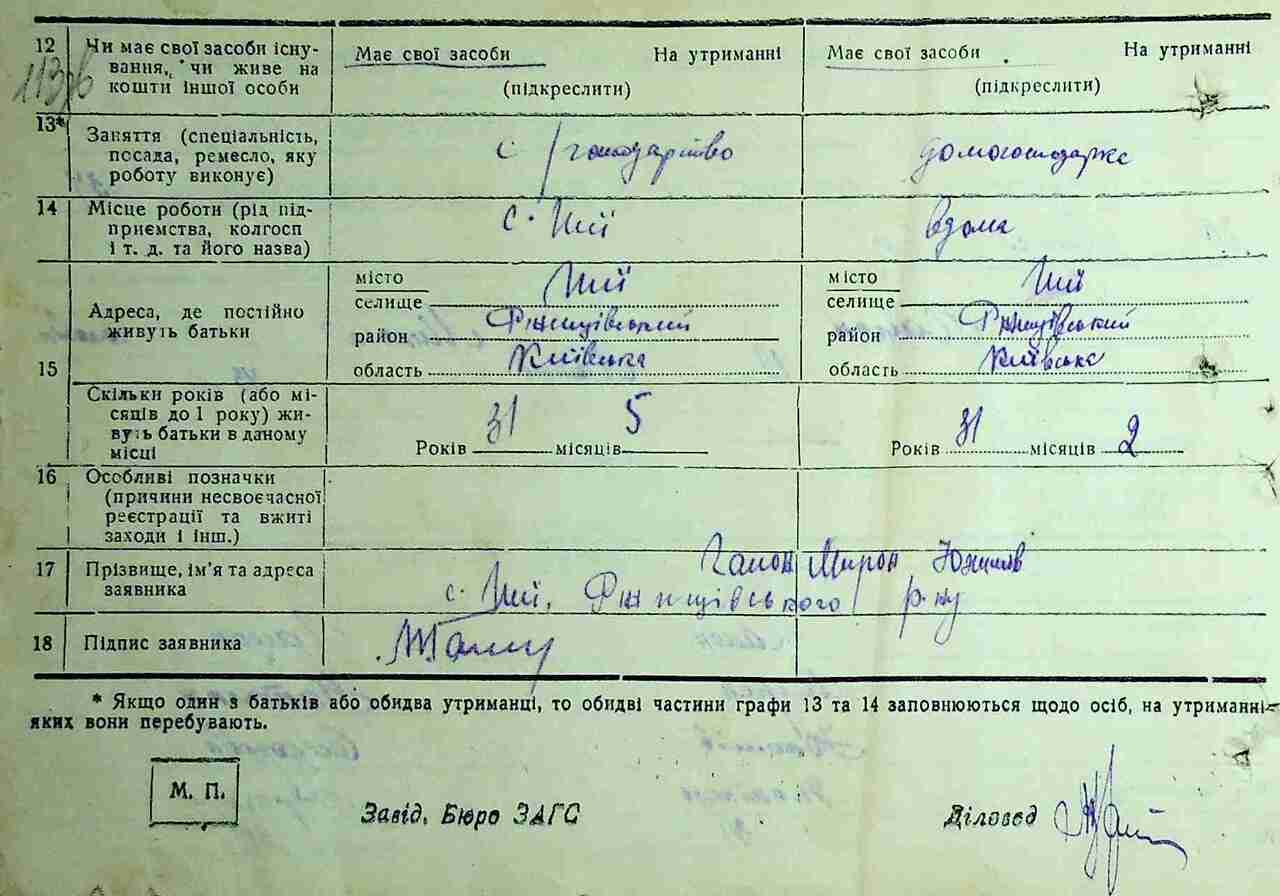 12 Чи має свої засоби існу- Має свої засоби На утриманні Має свої засоби На утриманні
113зв вання, чи живе на
кошти іншої особи (підкреслити) (підкреслити)
13* Заняття (спеціальність,
посада, ремесло, яку с/господарство домогосподарка
роботу виконує)
14 Місце роботи (рід під-
приємства, колгосп с. Шиї вдома
і т. д. та його назва)
місто Шиї місто Шиї
Адреса, де постійно селище селище
живуть батьки район Ржищівський район Ржищівський
15 область Київська область Київська
Скільки років (або мі-
сяців до 1 року) жи-
вуть батьки в даному Років 31 місяців 5 Років 31 місяців 2
місці
16 Особливі позначки
(причини несвоєчасної
реєстрації та вжиті
заходи і інш.)
17 Прізвище, ім’я та адреса Гапон Мирон
заявника с. Шиї, Ржищівського р-ну
18 Підпис заявника
* Якщо один з батьків або обидва утриманці, то обидві частини графи 13 та 14 заповнюються щодо осіб, на утриманні
яких вони перебувають.
М. П.
Завід. Бюро ЗАГС Діловод